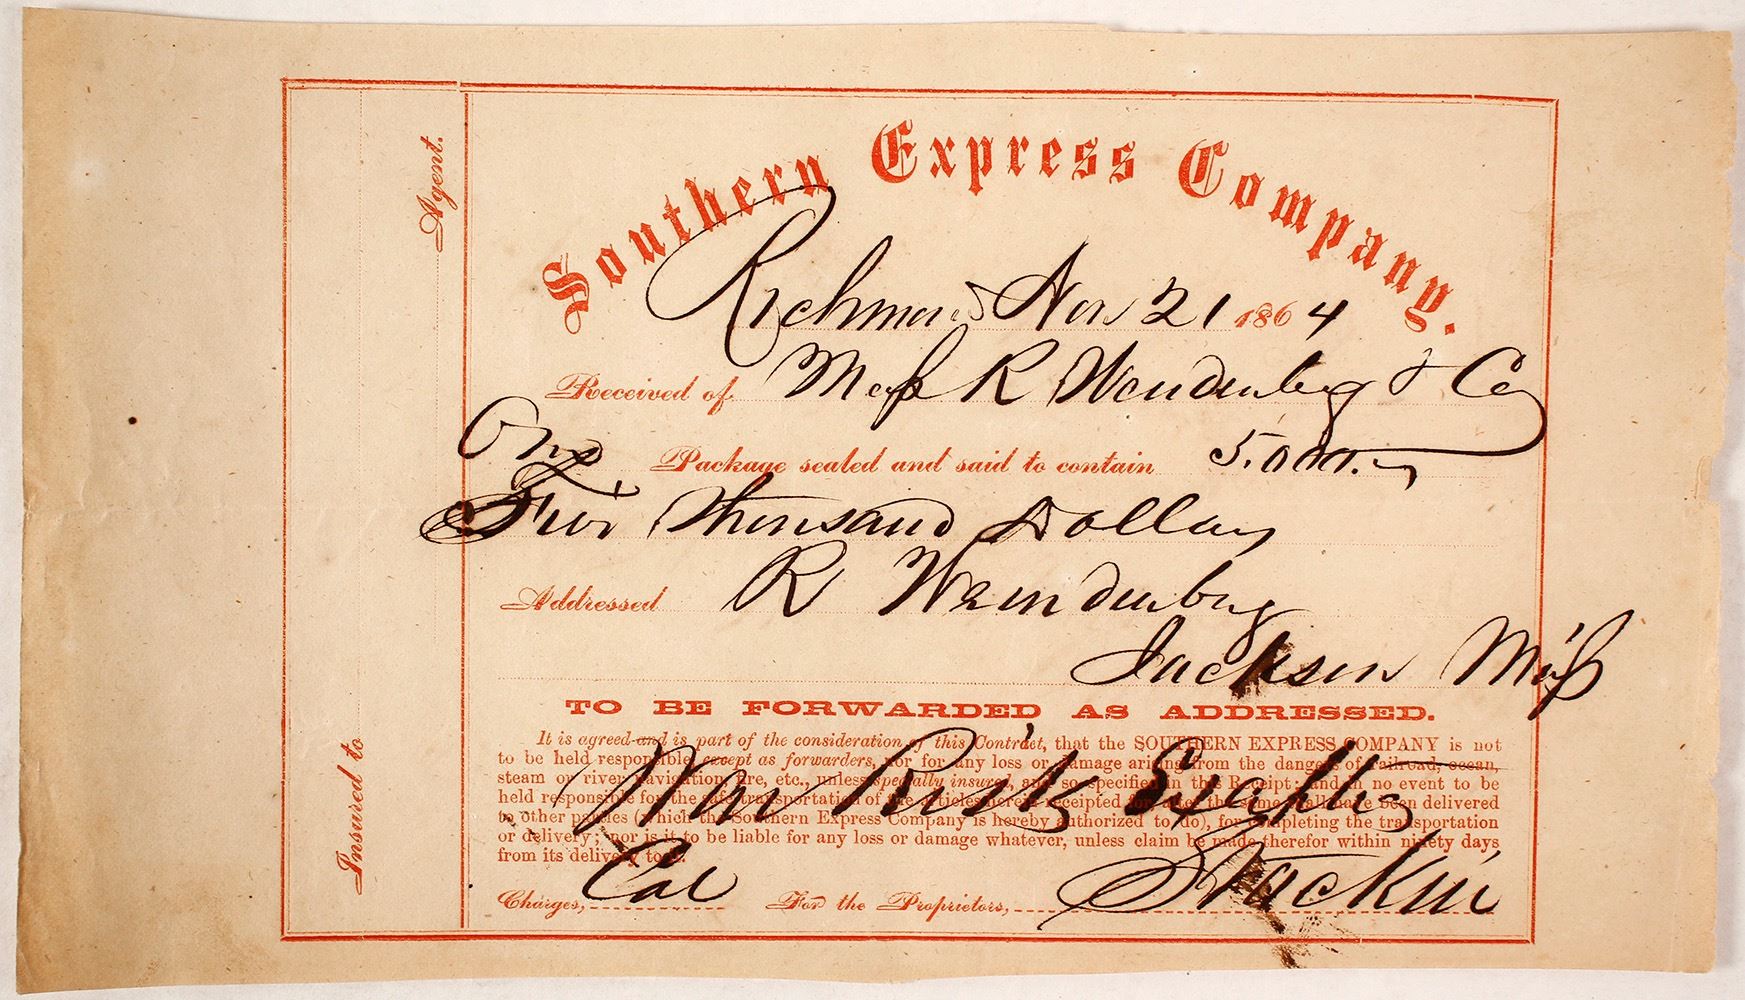 Southern Express Company.
Richmond Nov 21 1864
Received of Mess R Wendenburg & Co
One Package sealed and said to contain 5.000.
Five Thousand Dollars
Addressed R Wendenburg
Jackson Miss
TO BE FORWARDED AS ADDRESSED.
It is agreed and is part of the consideration of this Contract, that the SOUTHERN EXPRESS COMPANY is not
to be held responsible, except as forwarders, nor for any loss or damage arising from the dangers of railroad, ocean,
steam or river navigation, fire, etc., unless specially insured, and so specified in this Receipt; and in no event to be
held responsible for the safe transportation of the articles herein receipted for after the same shall have been delivered
to other parties (which the Southern Express Company is hereby authorized to do), for completing the transportation
or delivery; nor is it to be liable for any loss or damage whatever, unless claim be made therefor within ninety days
from its delivery to us.
War Risk
Charges, Col For the Proprietors,
Agent.
Insured to